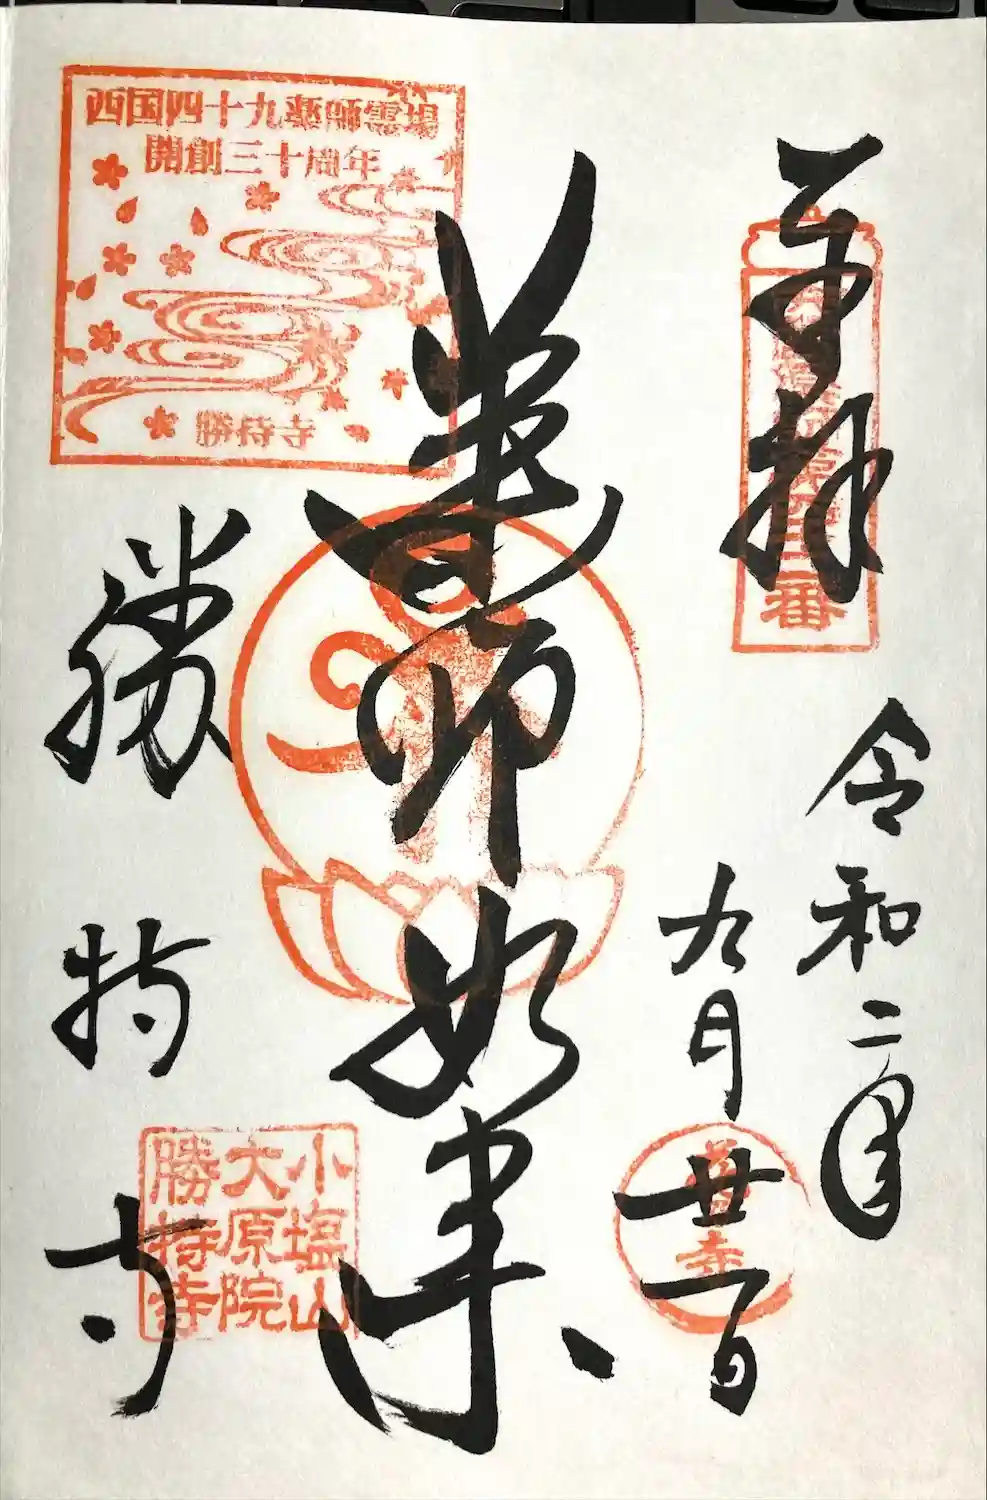 奉拝
西国薬師第四十二番
令和二年
九月廿一日
薬師如来
勝持寺
西国四十九薬師霊場
開創三十周年
勝持寺
小塩山
大原院
勝持寺